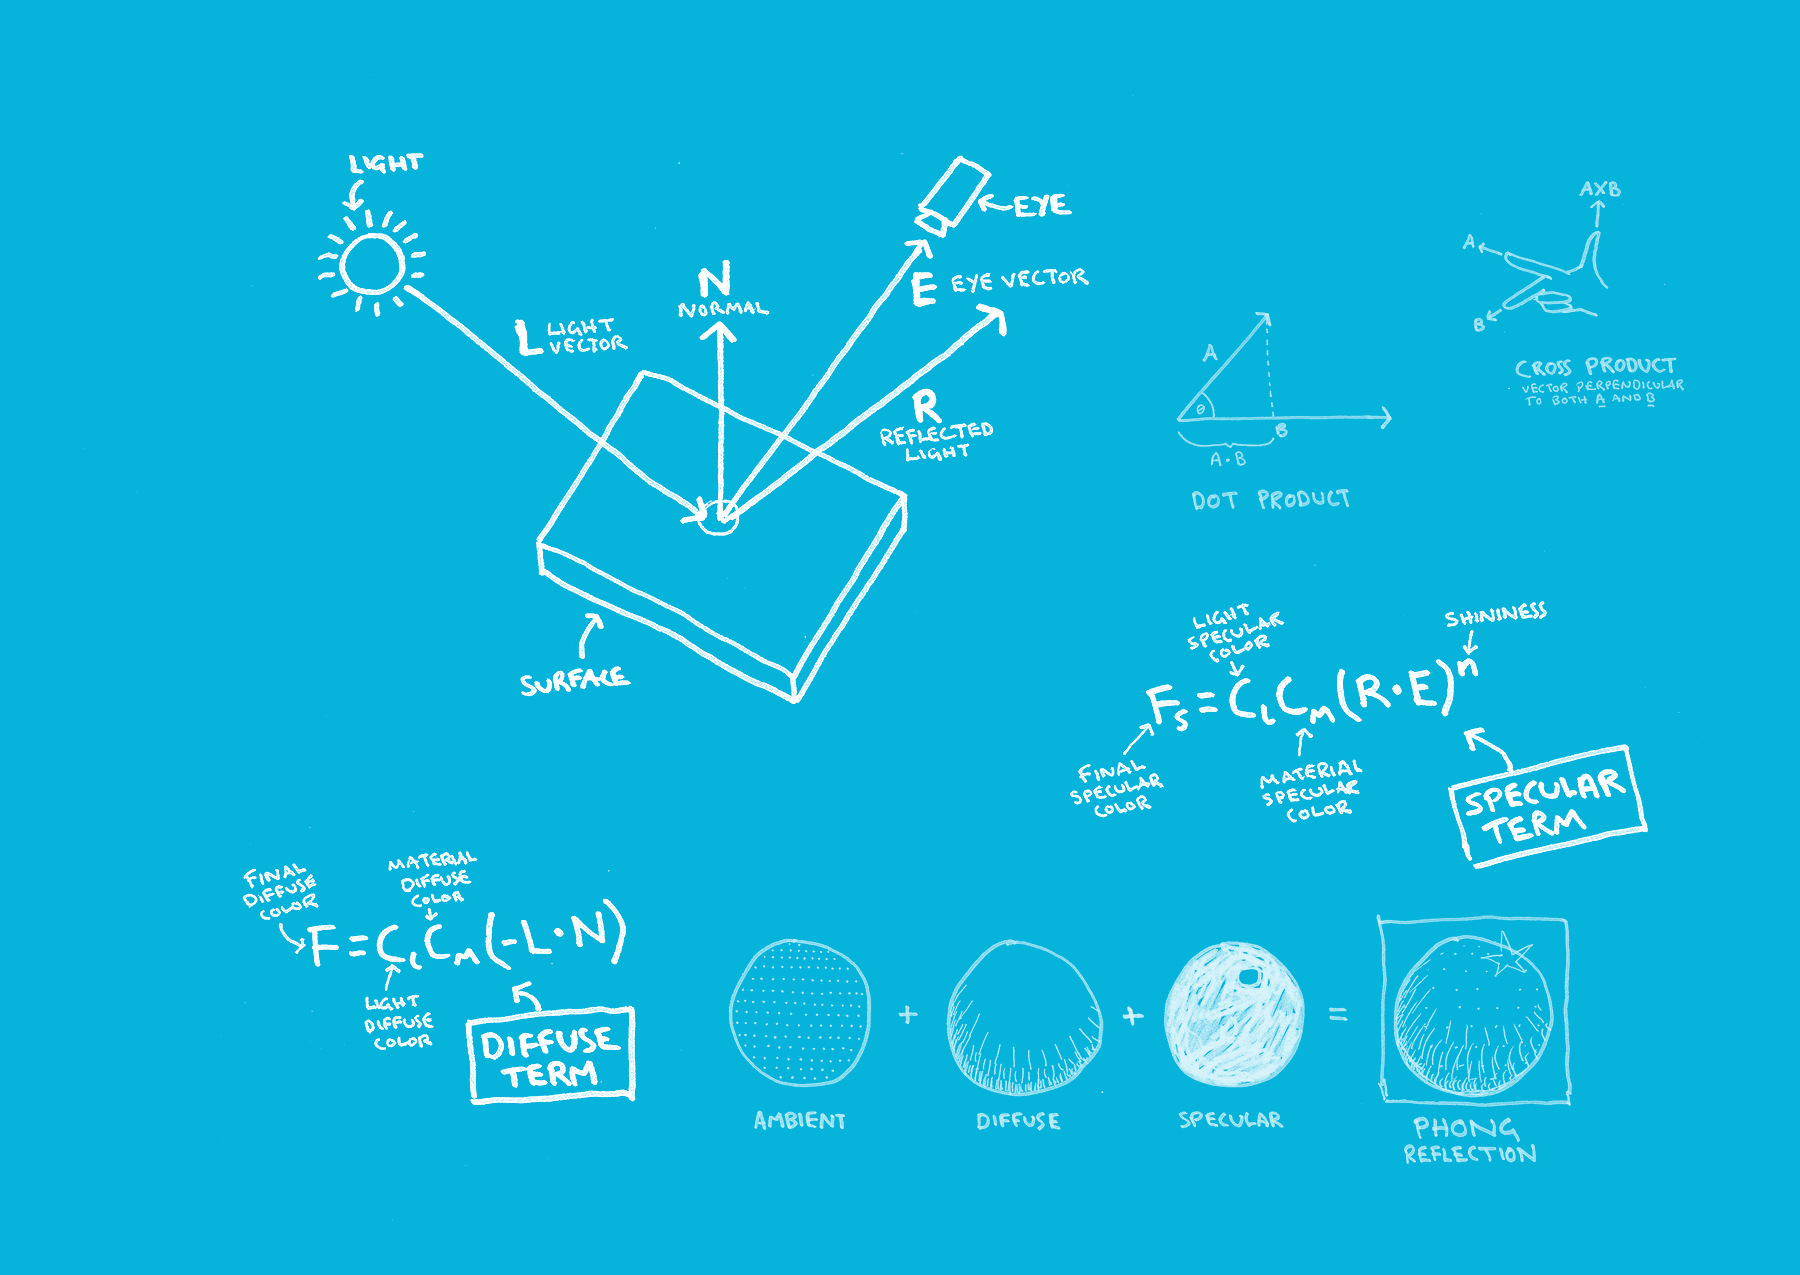 LIGHT
L LIGHT
VECTOR
N
NORMAL
EYE
E EYE VECTOR
R
REFLECTED
LIGHT
SURFACE
A
θ
B
A·B
DOT PRODUCT
AXB
A
B
CROSS PRODUCT
VECTOR PERPENDICULAR
TO BOTH A AND B
LIGHT
SPECULAR
COLOR
SHININESS
Fs = CL CM (R·E)^n
FINAL
SPECULAR
COLOR
MATERIAL
SPECULAR
COLOR
SPECULAR
TERM
FINAL
DIFFUSE
COLOR
MATERIAL
DIFFUSE
COLOR
F = CL CM (-L·N)
LIGHT
DIFFUSE
COLOR
DIFFUSE
TERM
+ + =
AMBIENT DIFFUSE SPECULAR PHONG
REFLECTION